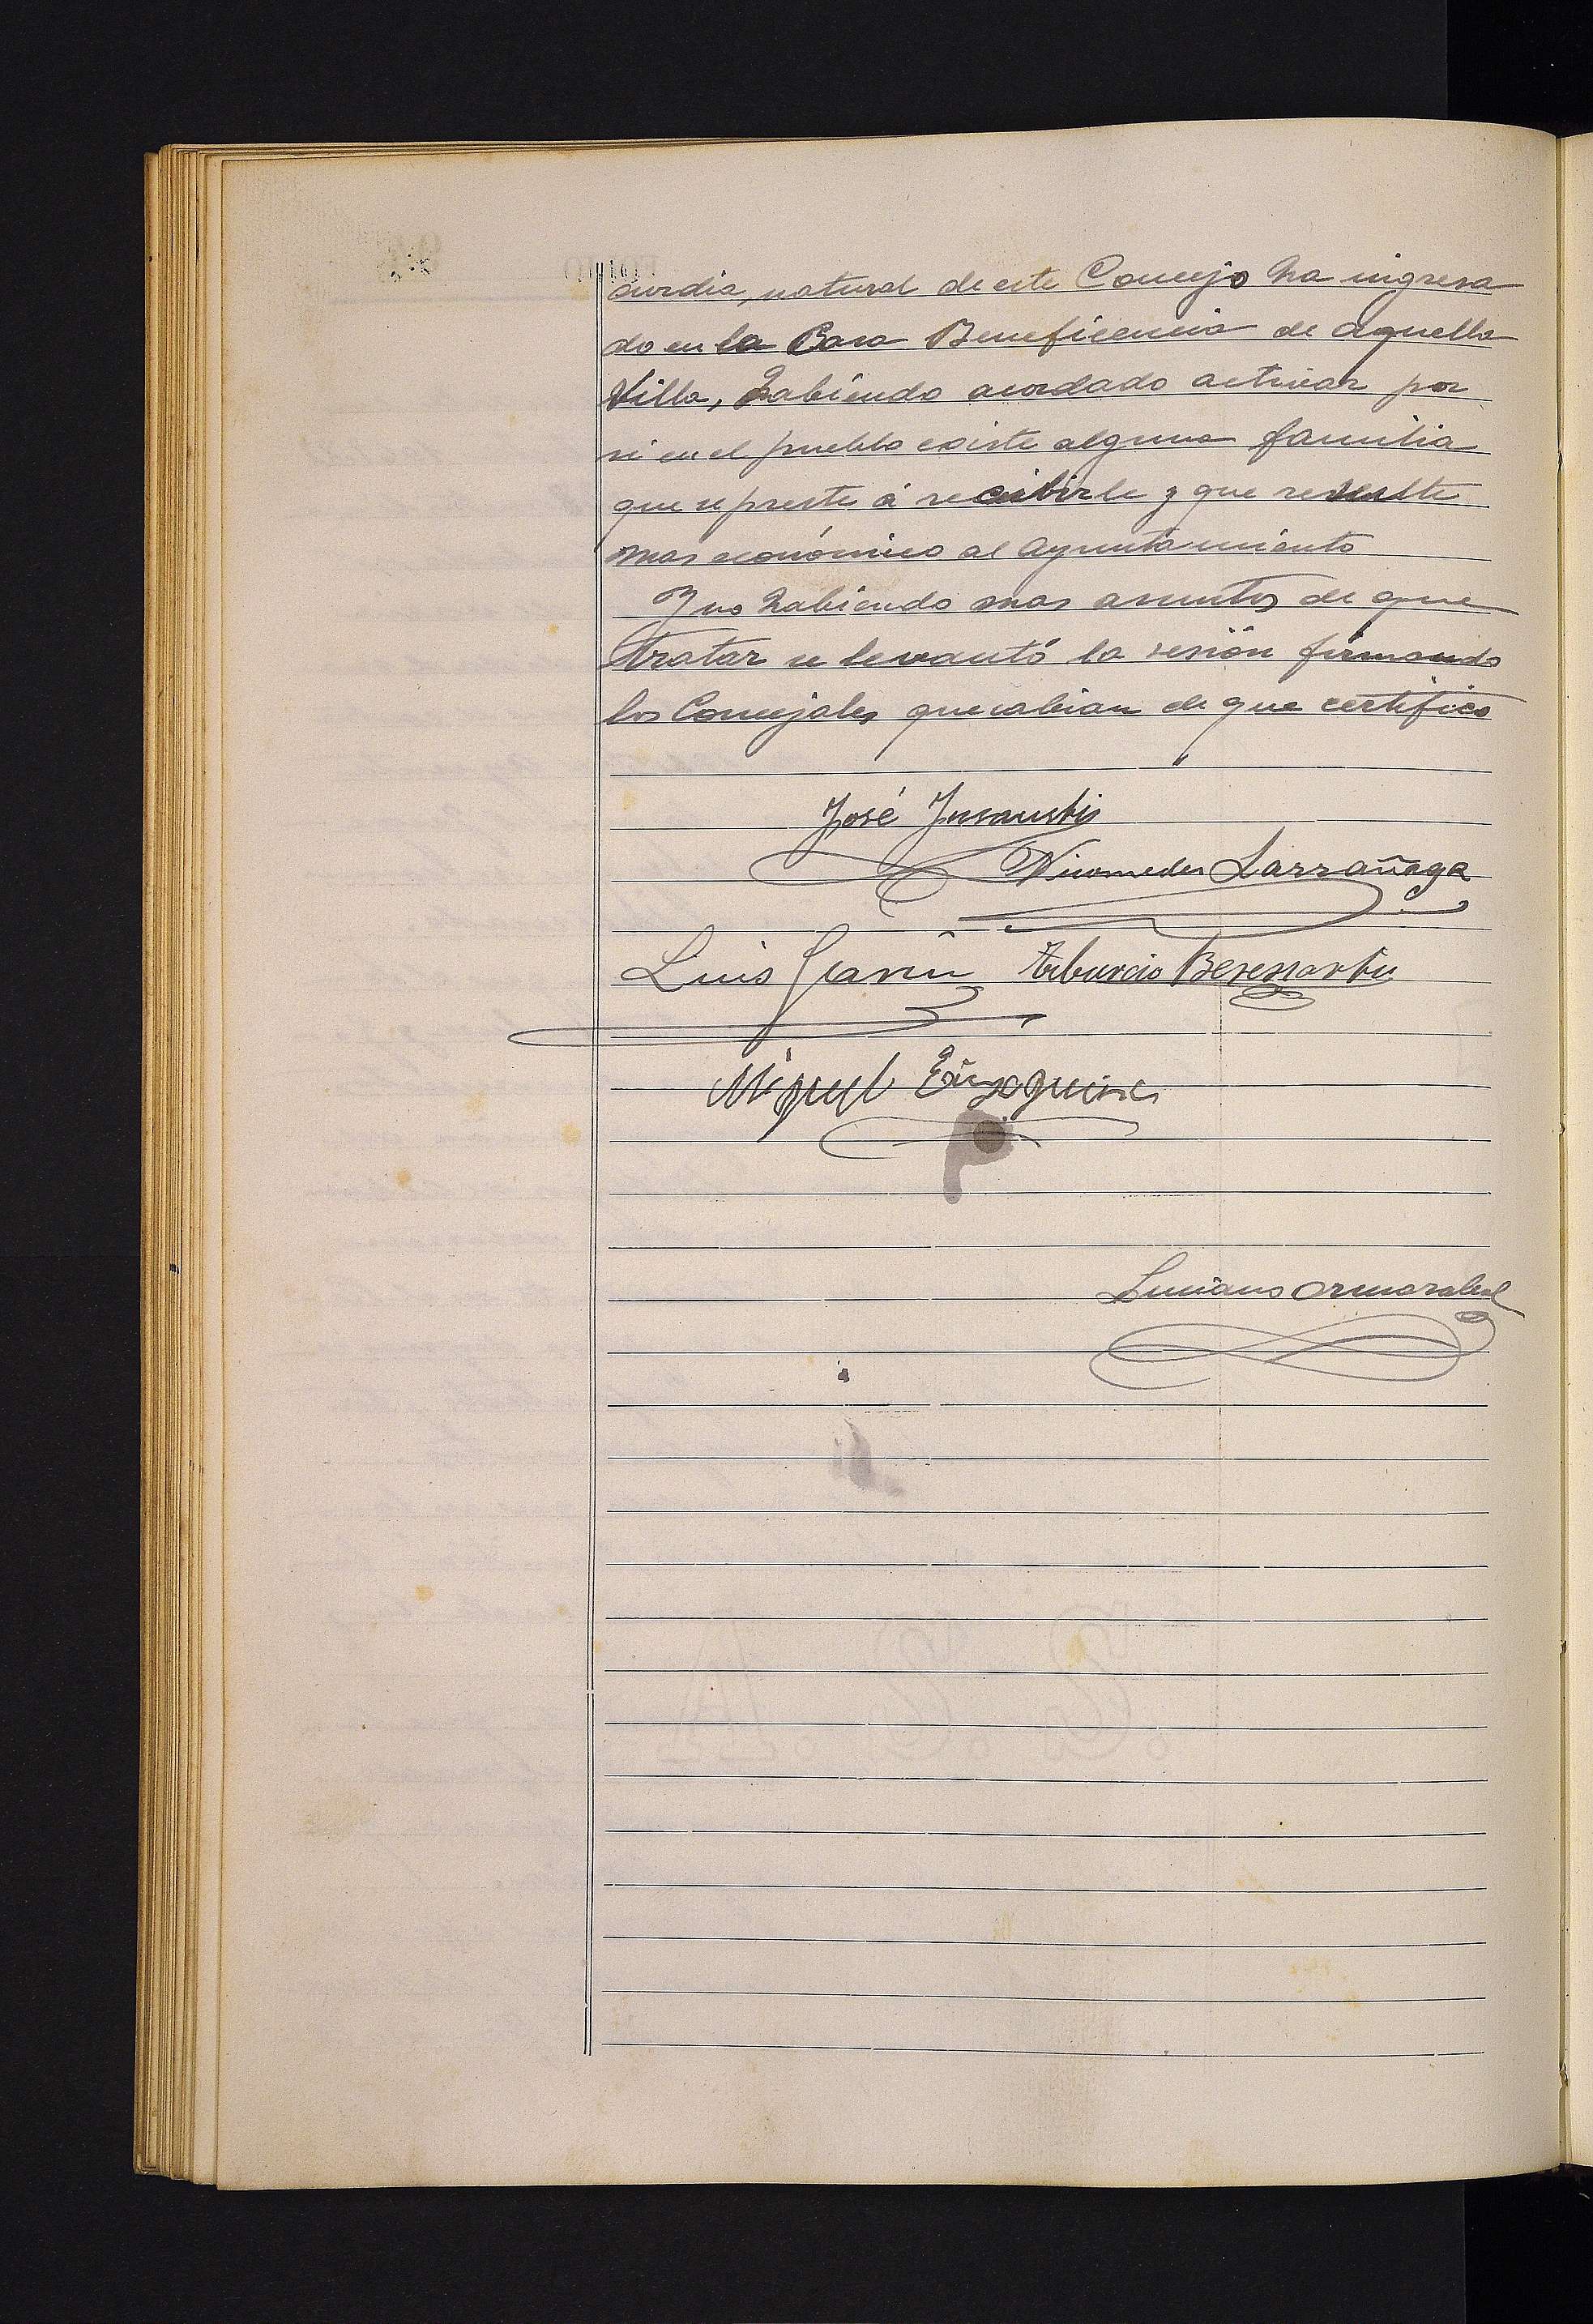 curdia, natural de este Concejo ha ingresa
do en la Casa Beneficencia de aquella
Villa, habiendo acordado activar por
si en el pueblo existe alguna familia
que se preste á recibirle y que resulte
mas económico al Ayuntamiento
Y no habiendo mas asuntos de que
tratar se levantó la sesión firmando
los Concejales que sabian de que certifico
José Insausti
Nicomedes Larrañaga
Luis Garin Tiburcio Beresiartu
Miguel
Luciano Ormazabal